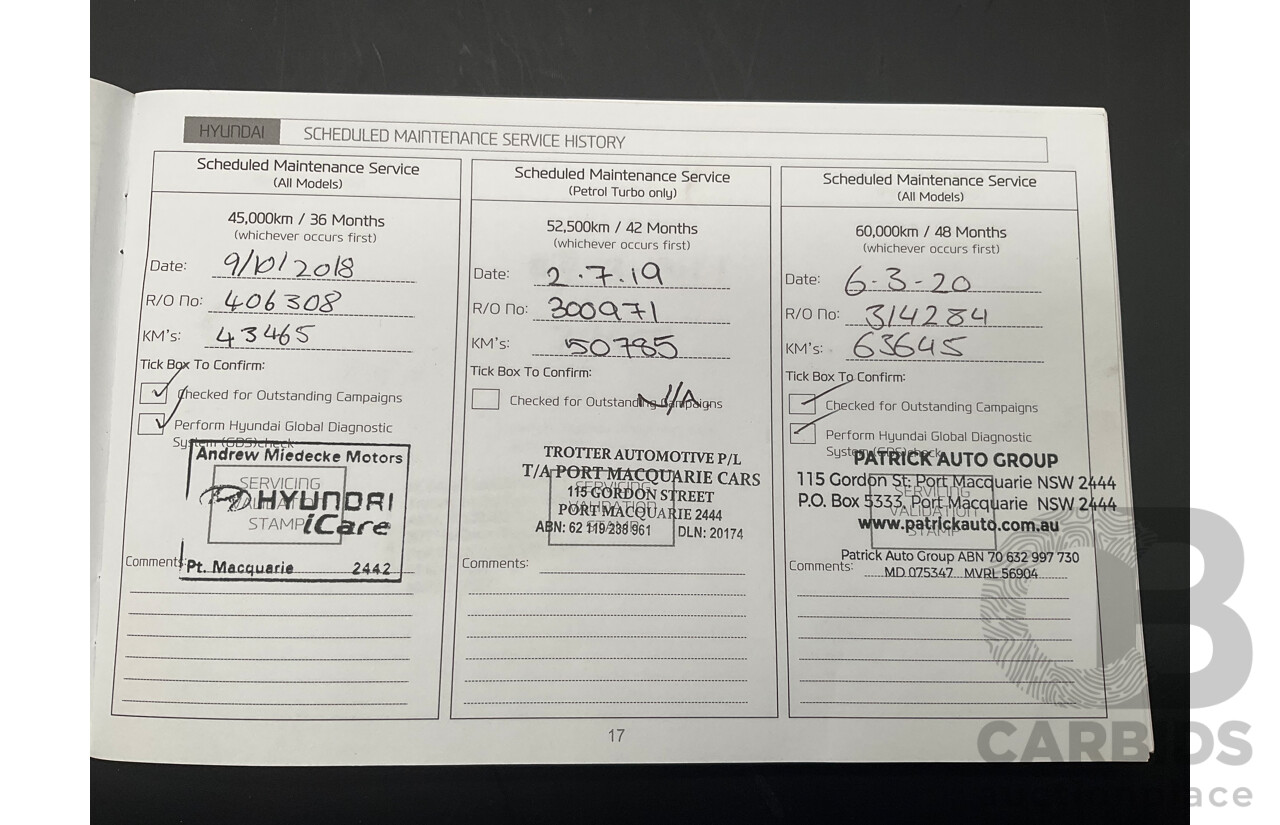 HYUNDAI SCHEDULED MAINTENANCE SERVICE HISTORY
Scheduled Maintenance Service
(All Models)
45,000km / 36 Months
(whichever occurs first)
Date: 9/10/2018
R/O No: 406308
KM's: 43465
Tick Box To Confirm:
Checked for Outstanding Campaigns
Perform Hyundai Global Diagnostic
System (GDS) check
Andrew Miedecke Motors
SERVICING
VALIDATION
STAMP
HYUNDAI
iCare
Pt. Macquarie 2442
Comments:
Scheduled Maintenance Service
(Petrol Turbo only)
52,500km / 42 Months
(whichever occurs first)
Date: 2.7.19
R/O No: 300971
KM's: 50785
Tick Box To Confirm:
Checked for Outstanding Campaigns
N/A.
TROTTER AUTOMOTIVE P/L
T/A PORT MACQUARIE CARS
115 GORDON STREET
PORT MACQUARIE 2444
ABN: 62 119 238 961 DLN: 20174
SERVICING
VALIDATION
STAMP
Comments:
Scheduled Maintenance Service
(All Models)
60,000km / 48 Months
(whichever occurs first)
Date: 6-3-20
R/O No: 314284
KM's: 63645
Tick Box To Confirm:
Checked for Outstanding Campaigns
Perform Hyundai Global Diagnostic
System (GDS) check
PATRICK AUTO GROUP
115 Gordon St: Port Macquarie NSW 2444
P.O. Box 5333, Port Macquarie NSW 2444
www.patrickauto.com.au
SERVICING
VALIDATION
STAMP
Patrick Auto Group ABN 70 632 997 730
MD 075347 MVRL 56904
Comments:
17
CARBIDS
auctionplace